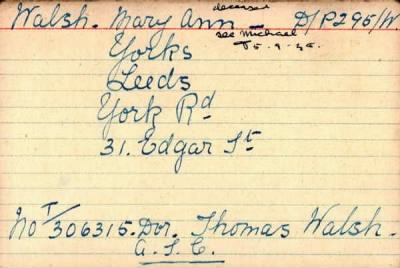 deceased
Walsh. Mary Ann D/P295/W
see Michael
15.9.35.
Yorks
Leeds
York Rd
31. Edgar St
No T/306315. Dvr. Thomas Walsh.
A.S.C.